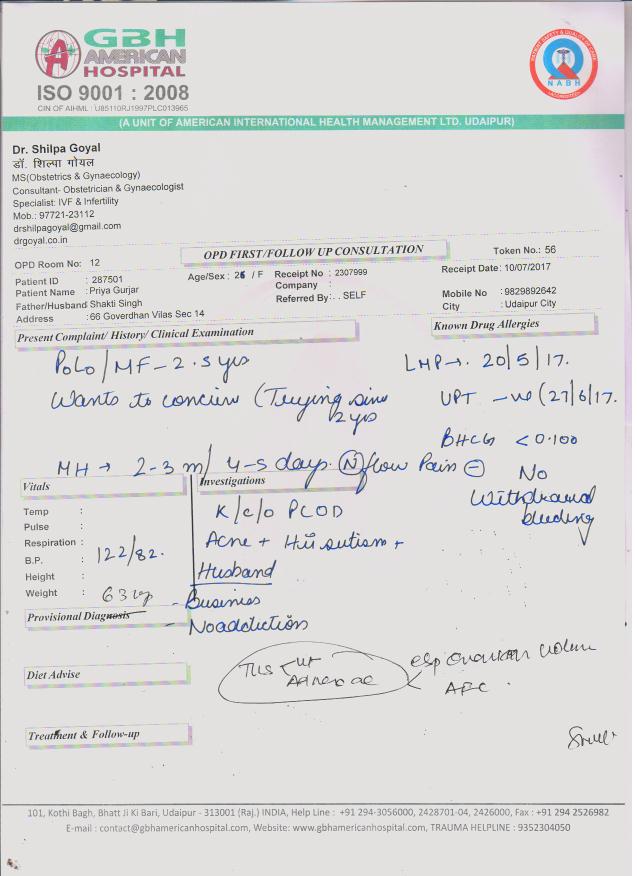 GBH
AMERICAN
HOSPITAL
ISO 9001 : 2008
CIN OF AIHML : U85110RJ1997PLC013965
NABH
(A UNIT OF AMERICAN INTERNATIONAL HEALTH MANAGEMENT LTD. UDAIPUR)
Dr. Shilpa Goyal
डॉ. शिल्पा गोयल
MS(Obstetrics & Gynaecology)
Consultant- Obstetrician & Gynaecologist
Specialist: IVF & Infertility
Mob.: 97721-23112
drshilpagoyal@gmail.com
drgoyal.co.in
OPD FIRST/FOLLOW UP CONSULTATION
OPD Room No: 12
Token No.: 56
Patient ID : 287501 Age/Sex : / F Receipt No : 2307999 Receipt Date: 10/07/2017
Patient Name : Priya Gurjar Company :
Father/Husband Shakti Singh Referred By : . SELF Mobile No : 9829892642
Address : 66 Goverdhan Vilas Sec 14 City : Udaipur City
Present Complaint/ History/ Clinical Examination Known Drug Allergies
P0L0/MF - 2.5 yrs LMP → 20/5/17.
Wants to (Trying UPT -ve (27/6/17.
2 yrs
BHCG <0.100
MH → 2-3 m/ 4-5 days. (N) flow Pain ⊖ No
Withdrawal
bleeding
Vitals Investigations
Temp : K/c/o PCOD
Pulse :
Respiration : Acne + Hirsutism +
B.P. : 122/82.
Height : Husband
Weight : 63 kg - Business
Provisional Diagnosis - No addiction
Diet Advise
AFC
Treatment & Follow-up
101, Kothi Bagh, Bhatt Ji Ki Bari, Udaipur - 313001 (Raj.) INDIA, Help Line : +91 294-3056000, 2428701-04, 2426000, Fax : +91 294 2526982
E-mail : contact@gbhamericanhospital.com, Website: www.gbhamericanhospital.com, TRAUMA HELPLINE : 9352304050